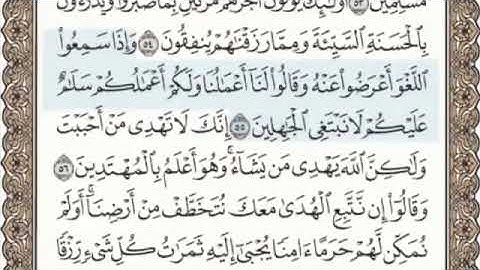 مُسْلِمِينَ ٥٣ أُوْلَـٰٓئِكَ يُؤْتَوْنَ أَجْرَهُم مَّرَّتَيْنِ بِمَا صَبَرُوا۟ وَيَدْرَءُونَ
بِٱلْحَسَنَةِ ٱلسَّيِّئَةَ وَمِمَّا رَزَقْنَـٰهُمْ يُنفِقُونَ ٥٤ وَإِذَا سَمِعُوا۟
ٱللَّغْوَ أَعْرَضُوا۟ عَنْهُ وَقَالُوا۟ لَنَآ أَعْمَـٰلُنَا وَلَكُمْ أَعْمَـٰلُكُمْ سَلَـٰمٌ
عَلَيْكُمْ لَا نَبْتَغِى ٱلْجَـٰهِلِينَ ٥٥ إِنَّكَ لَا تَهْدِى مَنْ أَحْبَبْتَ
وَلَـٰكِنَّ ٱللَّهَ يَهْدِى مَن يَشَآءُ ۚ وَهُوَ أَعْلَمُ بِٱلْمُهْتَدِينَ ٥٦
وَقَالُوٓا۟ إِن نَّتَّبِعِ ٱلْهُدَىٰ مَعَكَ نُتَخَطَّفْ مِنْ أَرْضِنَآ ۚ أَوَلَمْ
نُمَكِّن لَّهُمْ حَرَمًا ءَامِنًا يُجْبَىٰٓ إِلَيْهِ ثَمَرَٰتُ كُلِّ شَىْءٍ رِّزْقًا